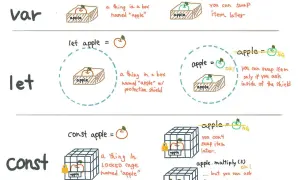 var
apple
a thing in a box
named "apple"
apple
you can swap
item, later
let
let apple =
apple
a thing in a box
named "apple" w/
protection shield
apple =
apple
you can swap item
only if you ask
inside of the shield
const
const apple =
apple
a thing in
LOCKED cage
named "apple"
apple =
you can't
swap item
later.
apple.multiply(3)
... but you can ask